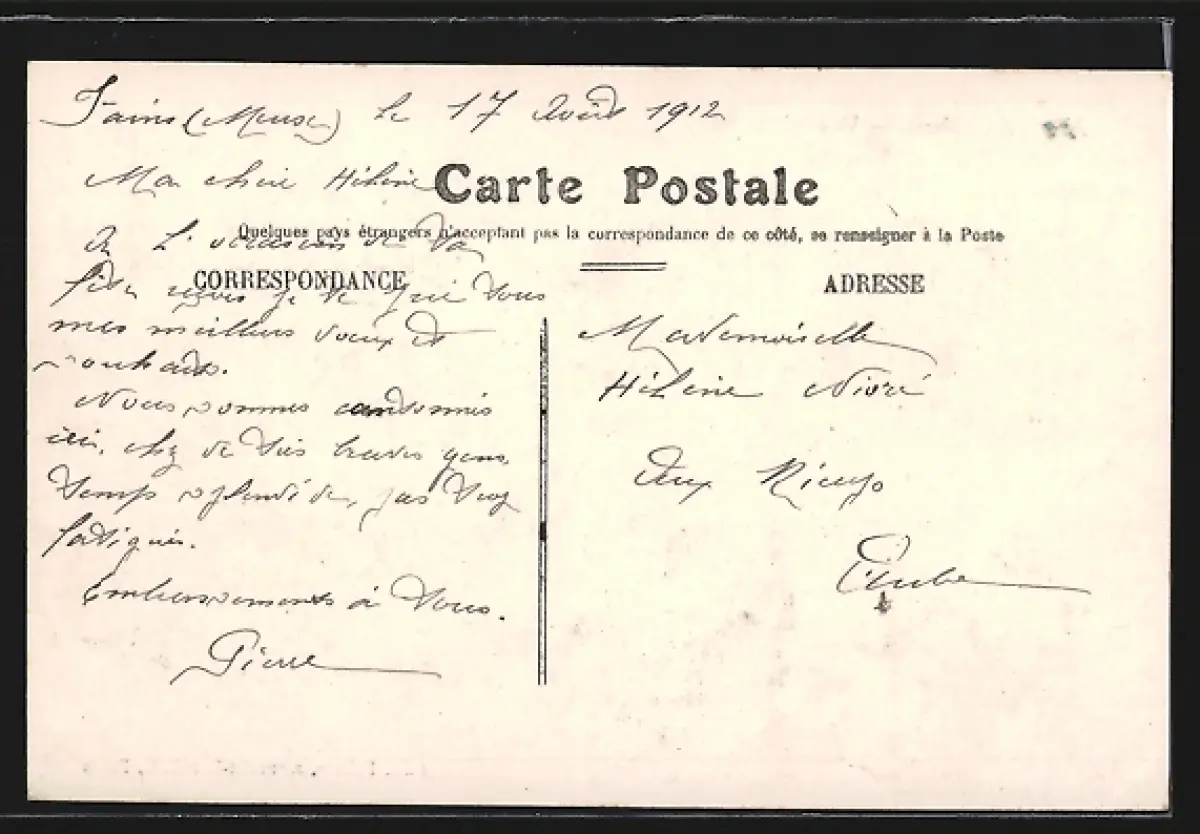 Fains (Meuse) le 17 Août 1912
Ma chère Hélène
Carte Postale
Quelques pays étrangers n'acceptant pas la correspondance de ce côté, se renseigner à la Poste
A l'occasion de ta
CORRESPONDANCE
fête, reçois je te prie tous
mes meilleurs voeux et
souhaits.
Nous sommes cantonnés
ici, chez de très braves gens,
temps splendide, pas trop
fatigués.
Embrassements à tous.
Pierre
ADRESSE
Mademoiselle
Hélène
Aux Riceys
Aube